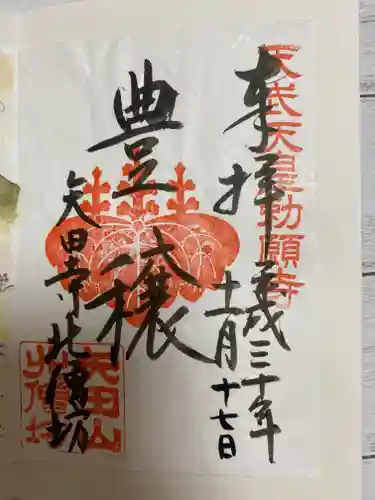 天武天皇勅願寺
奉拝 平成三十年
十一月十七日
豊穣
矢田寺北僧坊
矢田山
北僧坊